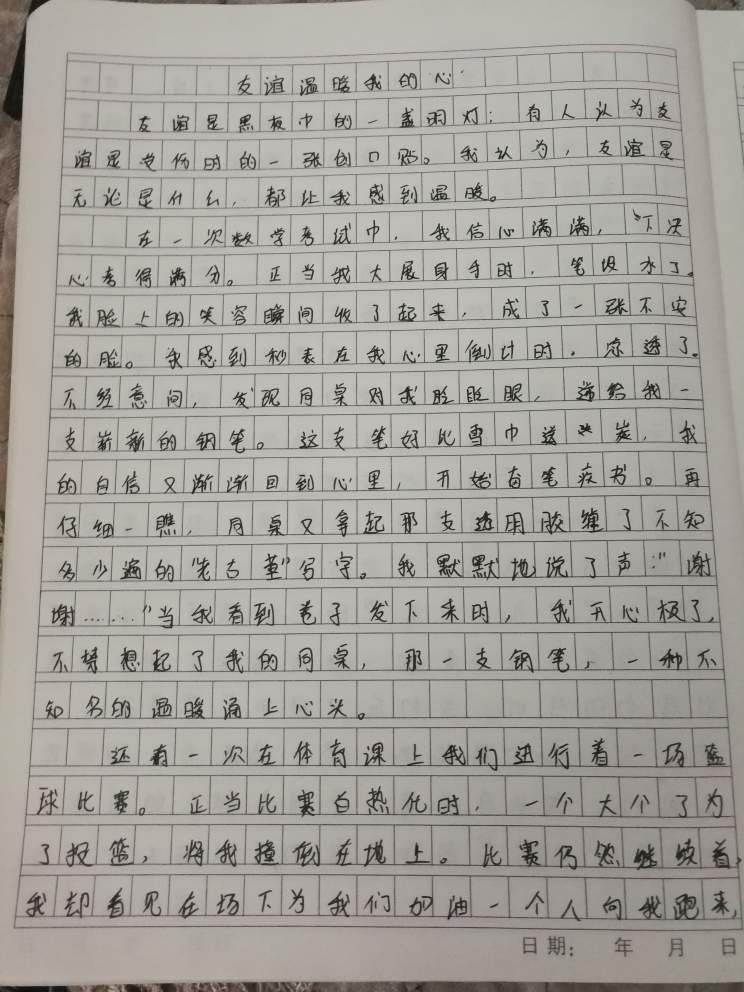 友谊温暖我的心
友谊是黑夜中的一盏明灯；有人认为友
谊是受伤时的一张创口贴。我认为，友谊是
无论是什么，都让我感到温暖。
在一次数学考试中，我信心满满，下决
心考得满分。正当我大展身手时，笔没水了。
我脸上的笑容瞬间收了起来，成了一张不安
的脸。我感到秒表在我心里倒计时，凉透了。
不经意间，发现同桌对我眨眨眼，递给我一
支崭新的钢笔。这支笔好比雪中送炭，我
的自信又渐渐回到心里，开始奋笔疾书。再
仔细一瞧，同桌又拿起那支透明胶缠了不知
多少遍的“老古董”写字。我默默地说了声：“谢
谢……”当我看到卷子发下来时，我开心极了，
不禁想起了我的同桌，那一支钢笔，一种不
知名的温暖涌上心头。
还有一次在体育课上我们进行着一场篮
球比赛。正当比赛白热化时，一个大个子为
了投篮，将我撞倒在地上。比赛仍然继续着，
我却看见在场下为我们加油一个人向我跑来，
日期： 年 月 日